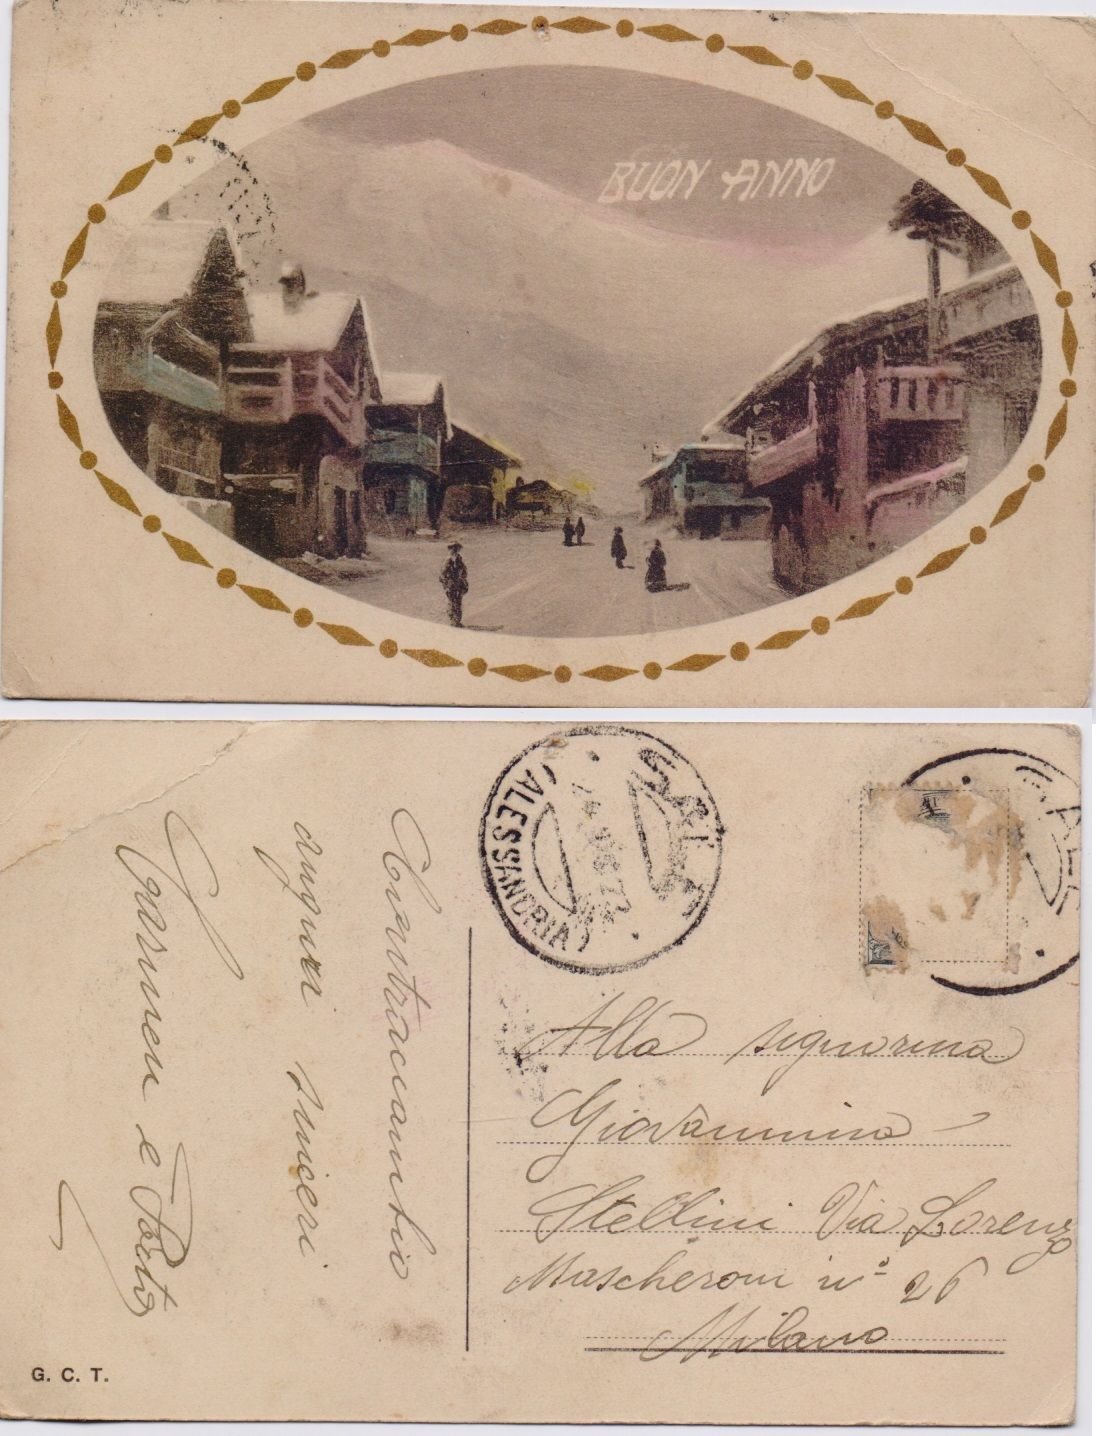 BUON ANNO
SALE
(ALESSANDRIA)
SALE
Contraccambio
auguri sinceri
Carmen e
Alla signorina
Giovannina
Stellini Via Lorenzo
Mascheroni n° 26
Milano
G. C. T.